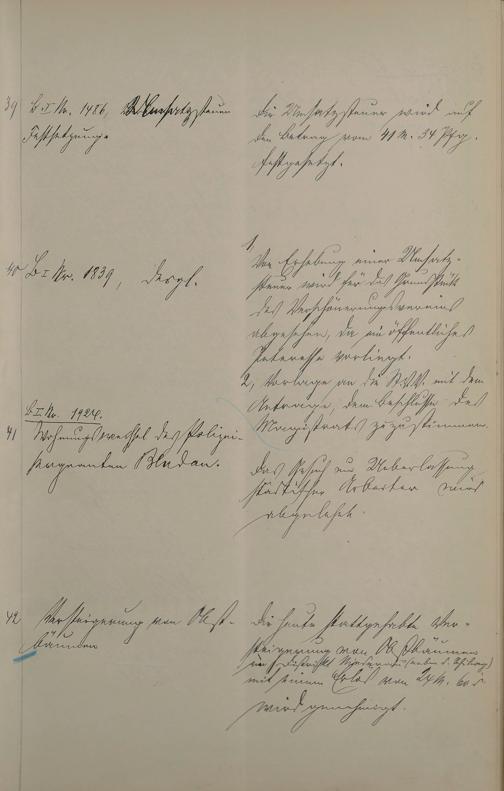 39 B.I.Nr. 1486, Umsatzsteuer
Festsetzung.
Die Umsatzsteuer wird auf
den Betrag von 41 M. 34 Pfg.
festgesetzt.
40 B I Nr. 1839, desgl.
1,
Von Erhebung einer Umsatz-
steuer wird für das Grundstück
des Verschönerungsvereins
abgesehen, da ein öffentliches
Interesse vorliegt.
2, Vorlage an die St.V.V. mit dem
Antrage, dem Beschlusse des
Magistrats zuzustimmen.
B.I.Nr. 1924.
41 Wohnungswechsel des Polizei-
sergeanten
Das Gesuch um Ueberlassung
städtischer Arbeiter wird
abgelehnt.
42 Versteigerung von Obst-
bäumen
Die heute stattgehabte Ver-
steigerung von Obstbäumen
im Distrikt
mit einem Erlös von 24 M. 60
wird genehmigt.